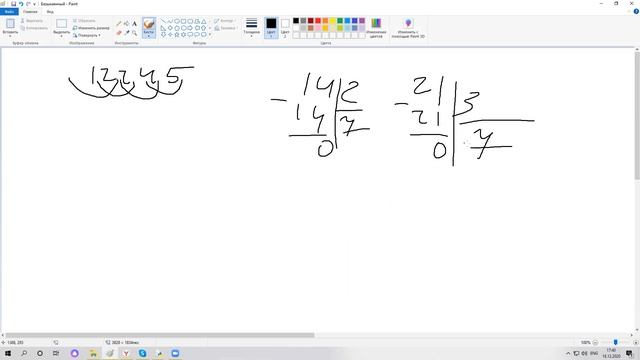 Безымянный - Paint
Файл Главная Вид
Вставить
Вырезать
Копировать
Выделить
Обрезать
Изменить размер
Повернуть
Кисти
Контур
Заливка
Толщина
Цвет 1
Цвет 2
Изменение цветов
Изменить с помощью Paint 3D
Буфер обмена Изображение Инструменты Фигуры Цвета
12245
14 2
- 14 7
0
21 3
- 21 7
0
1388, 293
3828 × 1834пкс
100%
ENG
17:40
18.12.2020